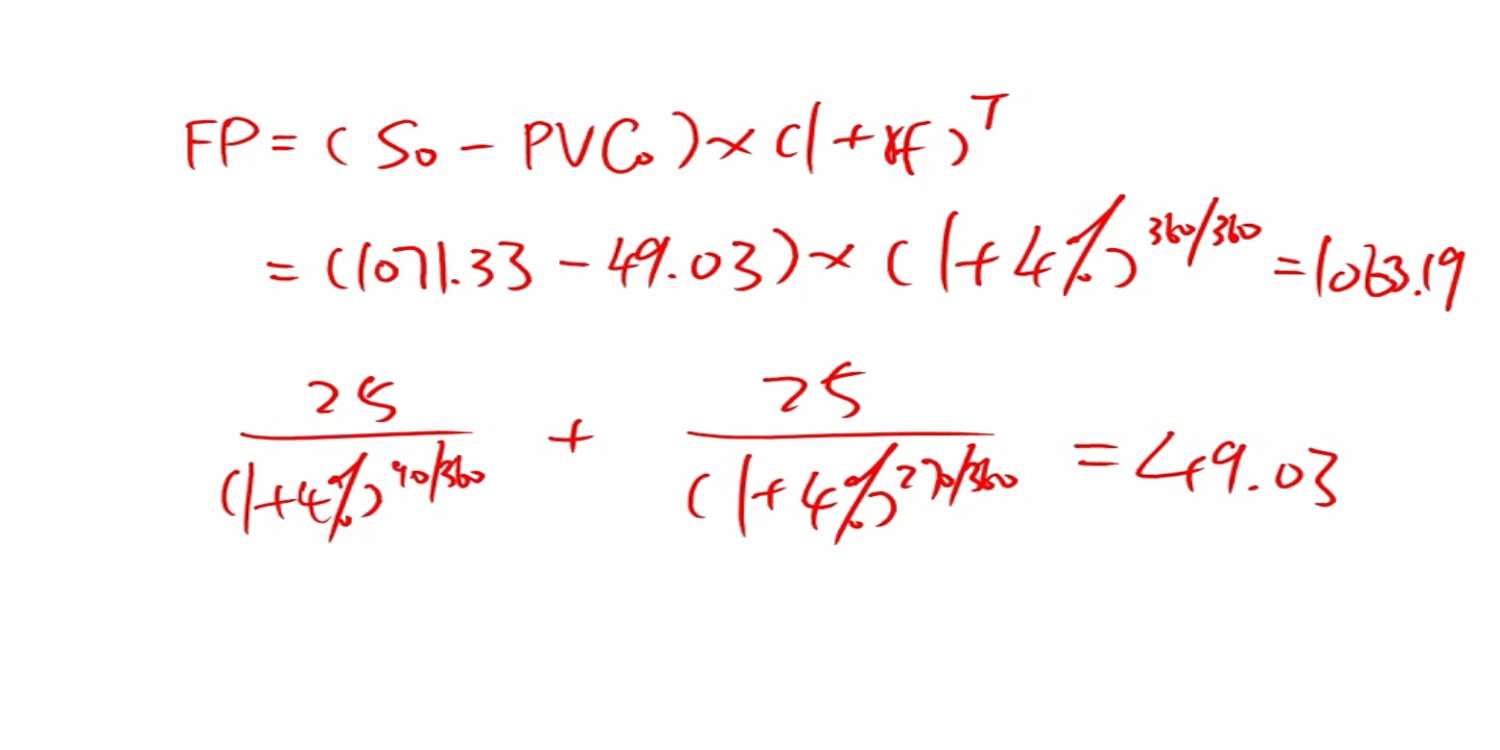 FP = (S₀ - PVC₀) × (1 + rf)^T
= (1071.33 - 49.03) × (1 + 4%)^360/360 = 1063.19
25/(1+4%)^90/360 + 25/(1+4%)^270/360 = 49.03